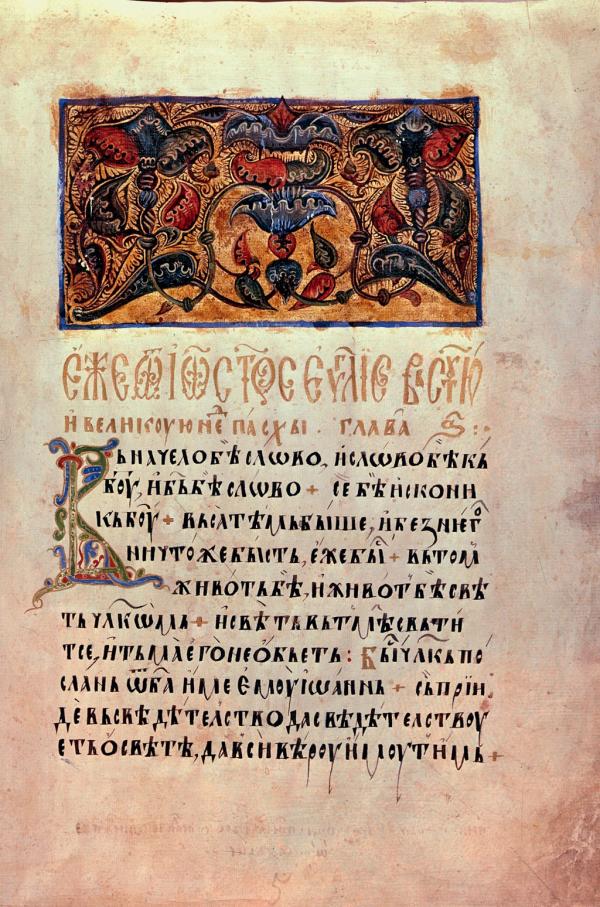 Е́ЖЕ Ѿ ІѠ СТ҃ОЕ ЕУ҃ЛІЕ В СТ҃УЮ
И ВЕЛИКОУЮ НЕⷣ ПАСХЫ. ГЛАВА Ѕ҃:·
Въ начело бѣ слѡво, и слѡво бѣ къ
б҃оу, и б҃ъ бѣ слѡво + се бѣ искони
къ б҃оу + въса тѣмь быше, и без него
ничтоже бысть, еже быⷭ + въ том
животь бѣ, и живѡт бѣ свѣ
ть чл҃кѡмь + и свѣть въ тмѣ свѣти
тсе, и тьма его не ѡбьеть: Быⷭ чл҃кь по
слань ѿ б҃а име емоу іѡаннь + съ прїи
де въ свѣдѣтелство да свѣдѣтелствоу
еть ѡ свѣтѣ, да вси вѣроу имоуть имь +